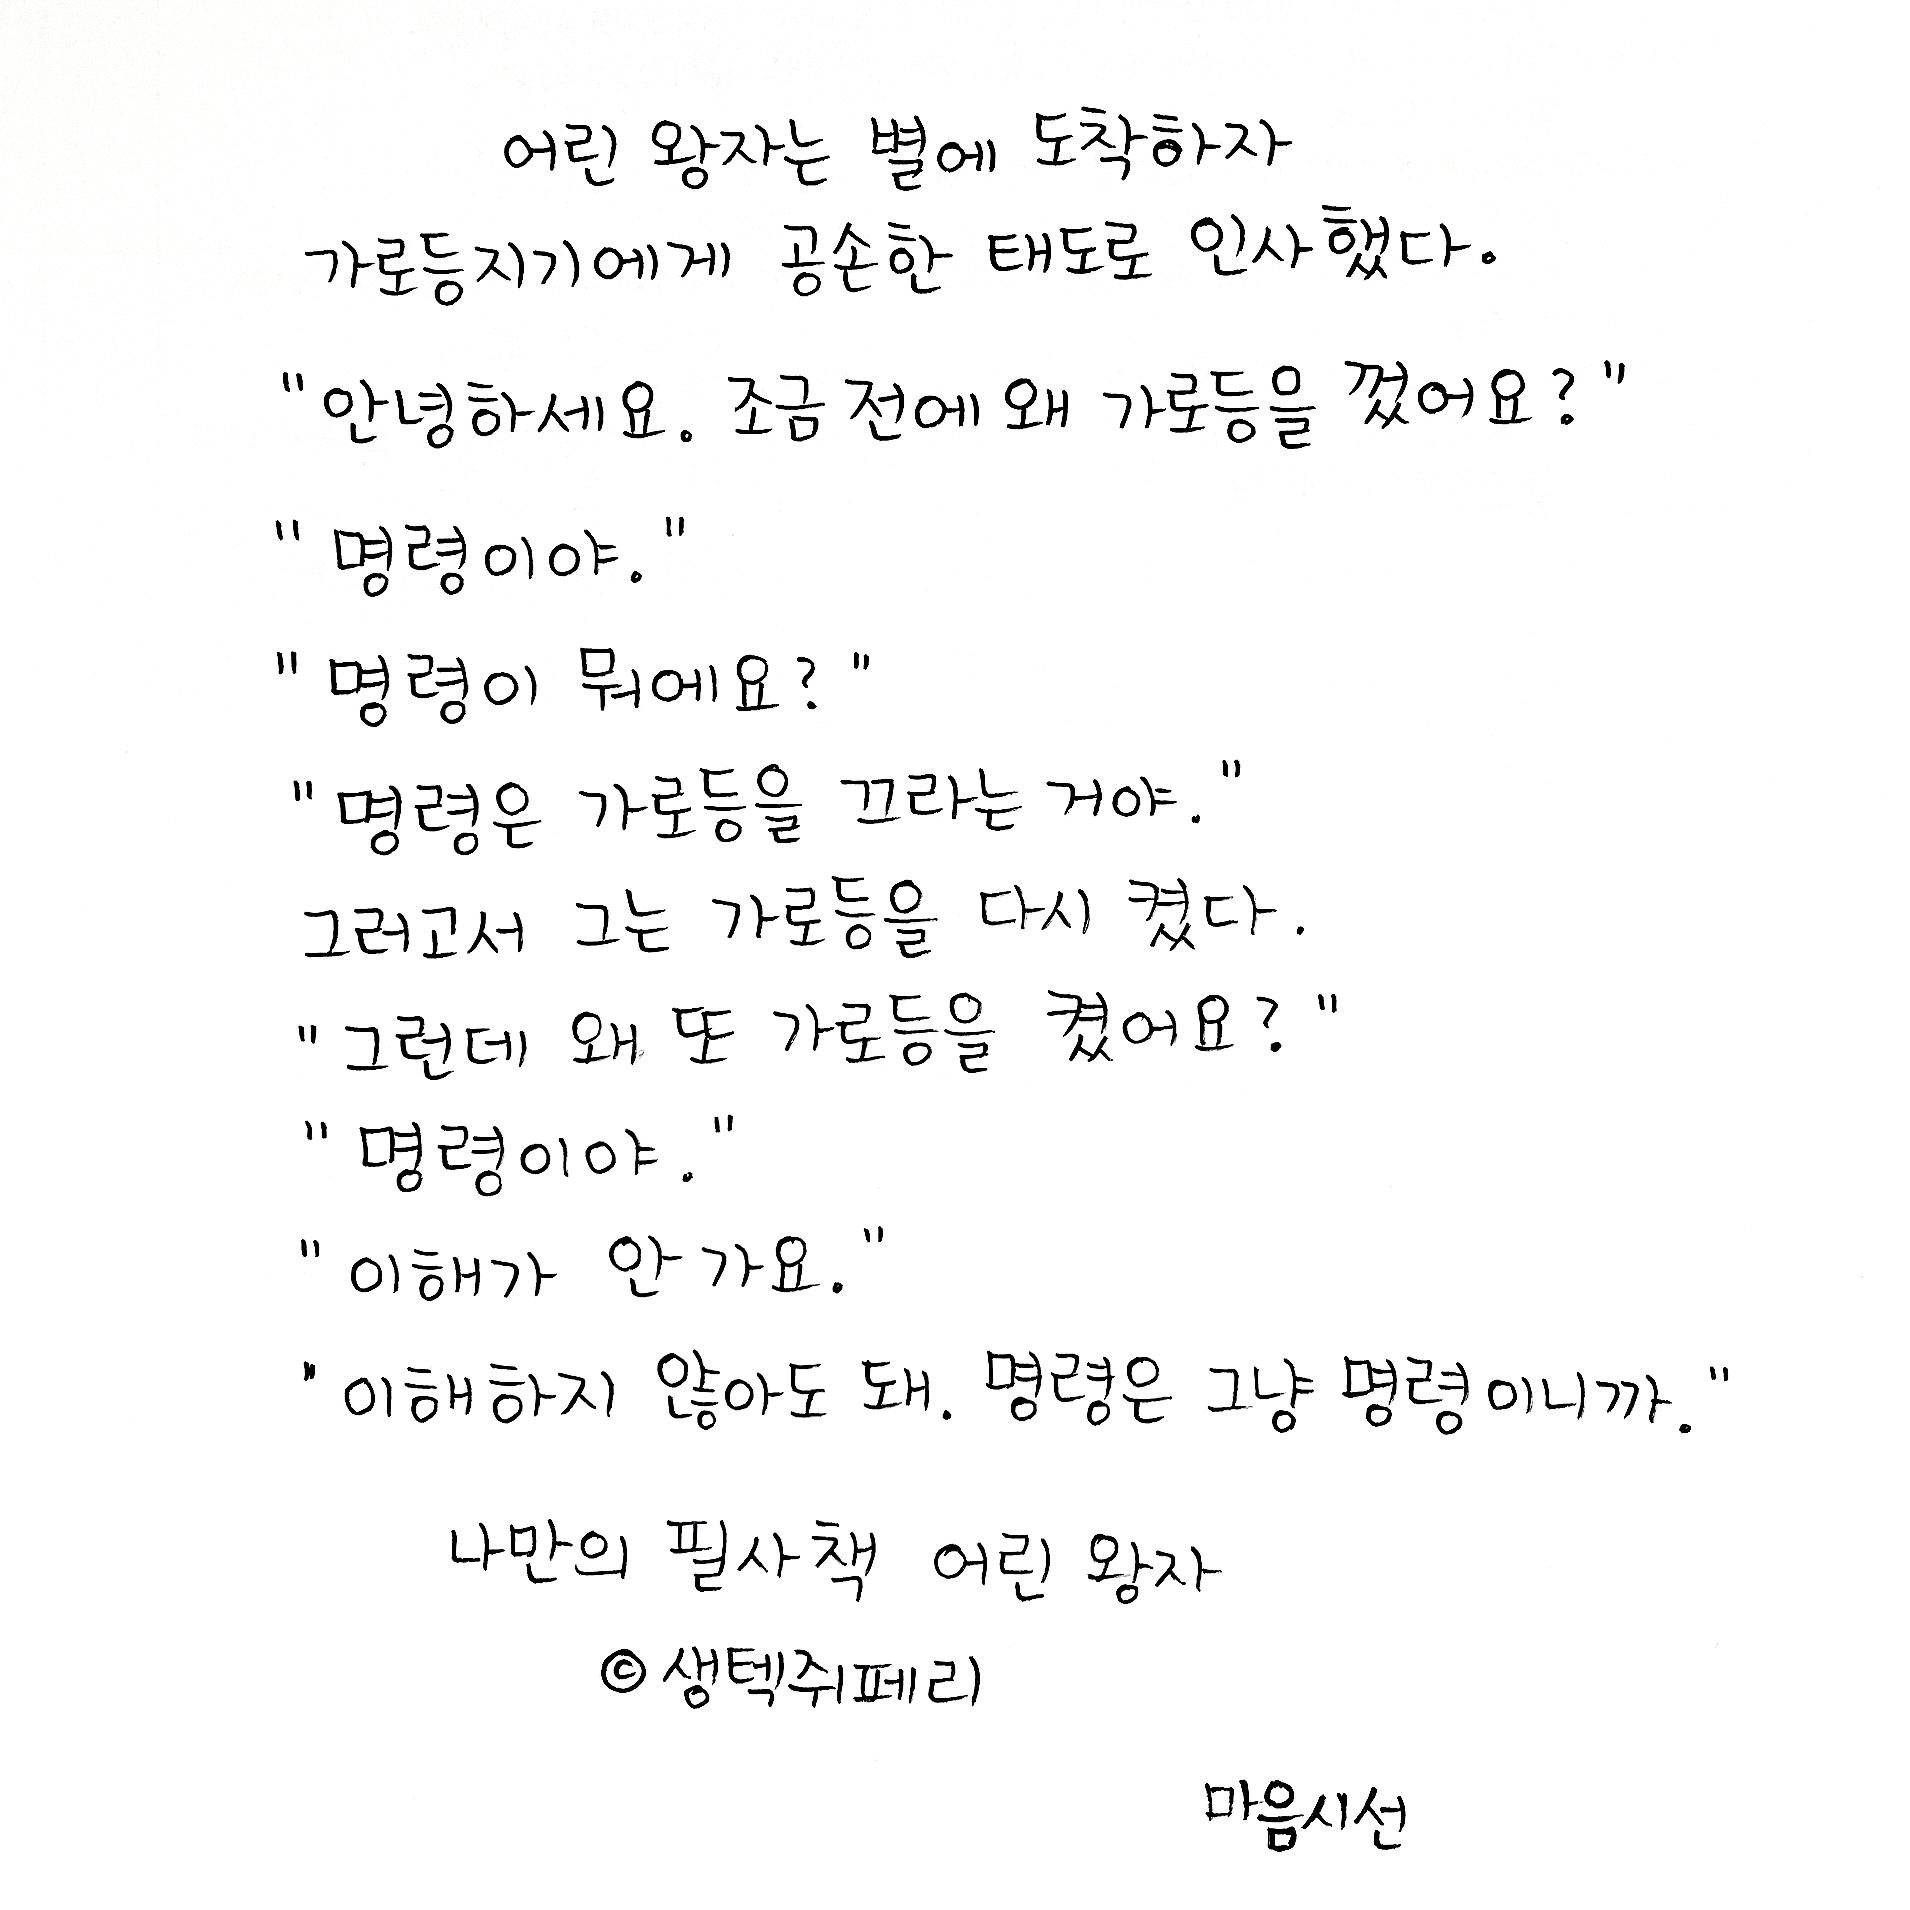 어린 왕자는 별에 도착하자
가로등지기에게 공손한 태도로 인사했다.
"안녕하세요. 조금 전에 왜 가로등을 껐어요?"
"명령이야."
"명령이 뭐에요?"
"명령은 가로등을 끄라는 거야."
그러고서 그는 가로등을 다시 켰다.
"그런데 왜 또 가로등을 켰어요?"
"명령이야."
"이해가 안 가요."
"이해하지 않아도 돼. 명령은 그냥 명령이니까."
나만의 필사책 어린 왕자
©생텍쥐페리
마음시선